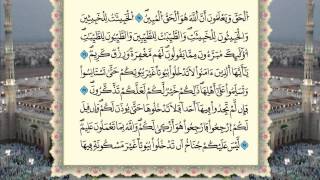 ٱلۡحَقَّ وَيَعۡلَمُونَ أَنَّ ٱللَّهَ هُوَ ٱلۡحَقُّ ٱلۡمُبِينُ ۝ ٱلۡخَبِيثَٰتُ لِلۡخَبِيثِينَ
وَٱلۡخَبِيثُونَ لِلۡخَبِيثَٰتِۖ وَٱلطَّيِّبَٰتُ لِلطَّيِّبِينَ وَٱلطَّيِّبُونَ لِلطَّيِّبَٰتِۚ
أُوْلَٰٓئِكَ مُبَرَّءُونَ مِمَّا يَقُولُونَۖ لَهُم مَّغۡفِرَةٞ وَرِزۡقٞ كَرِيمٞ ۝
يَٰٓأَيُّهَا ٱلَّذِينَ ءَامَنُواْ لَا تَدۡخُلُواْ بُيُوتًا غَيۡرَ بُيُوتِكُمۡ حَتَّىٰ تَسۡتَأۡنِسُواْ
وَتُسَلِّمُواْ عَلَىٰٓ أَهۡلِهَاۚ ذَٰلِكُمۡ خَيۡرٞ لَّكُمۡ لَعَلَّكُمۡ تَذَكَّرُونَ ۝
فَإِن لَّمۡ تَجِدُواْ فِيهَآ أَحَدٗا فَلَا تَدۡخُلُوهَا حَتَّىٰ يُؤۡذَنَ لَكُمۡۖ وَإِن قِيلَ
لَكُمُ ٱرۡجِعُواْ فَٱرۡجِعُواْۖ هُوَ أَزۡكَىٰ لَكُمۡۚ وَٱللَّهُ بِمَا تَعۡمَلُونَ عَلِيمٞ ۝
لَّيۡسَ عَلَيۡكُمۡ جُنَاحٌ أَن تَدۡخُلُواْ بُيُوتًا غَيۡرَ مَسۡكُونَةٖ فِيهَا